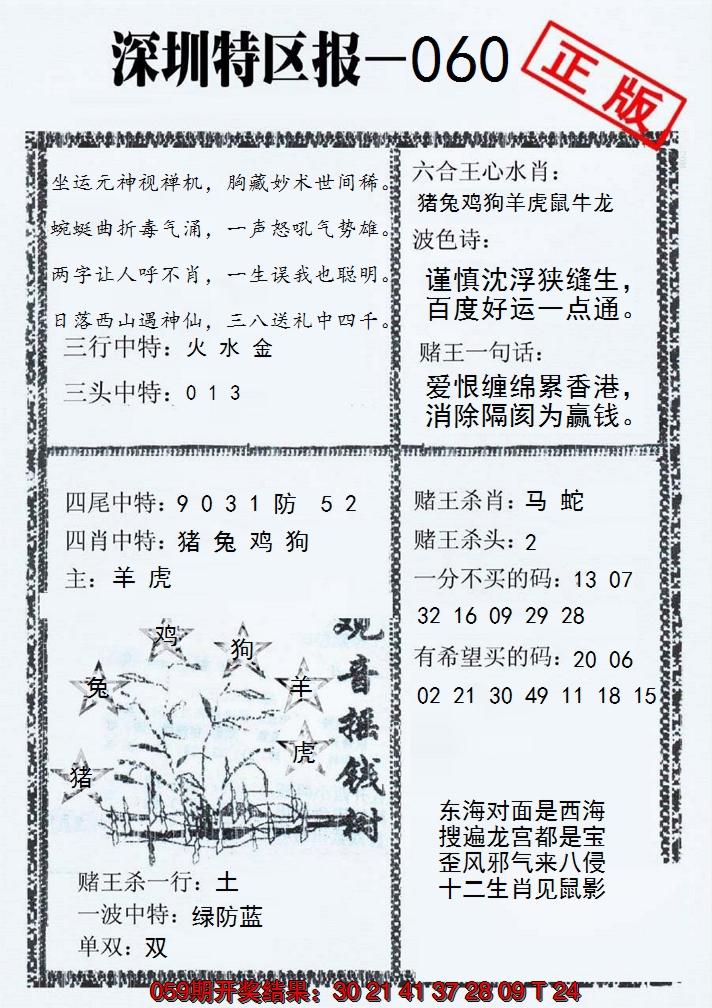 深圳特区报—060
正版
坐运元神视禅机，胸藏妙术世间稀。
蜿蜒曲折毒气涌，一声怒吼气势雄。
两字让人呼不肖，一生误我也聪明。
日落西山遇神仙，三八送礼中四千。
三行中特：火 水 金
三头中特：0 1 3
六合王心水肖：
猪兔鸡狗羊虎鼠牛龙
波色诗：
谨慎沈浮狭缝生，
百度好运一点通。
赌王一句话：
爱恨缠绵累香港，
消除隔阂为赢钱。
四尾中特：9 0 3 1 防 5 2
四肖中特：猪 兔 鸡 狗
主：羊 虎
鸡
狗
兔
羊
虎
猪
观音摇钱树
赌王杀一行：土
一波中特：绿防蓝
单双：双
赌王杀肖：马 蛇
赌王杀头：2
一分不买的码：13 07
32 16 09 29 28
有希望买的码：20 06
02 21 30 49 11 18 15
东海对面是西海
搜遍龙宫都是宝
歪风邪气来八侵
十二生肖见鼠影
059期开奖结果：30 21 41 37 28 09 T 24